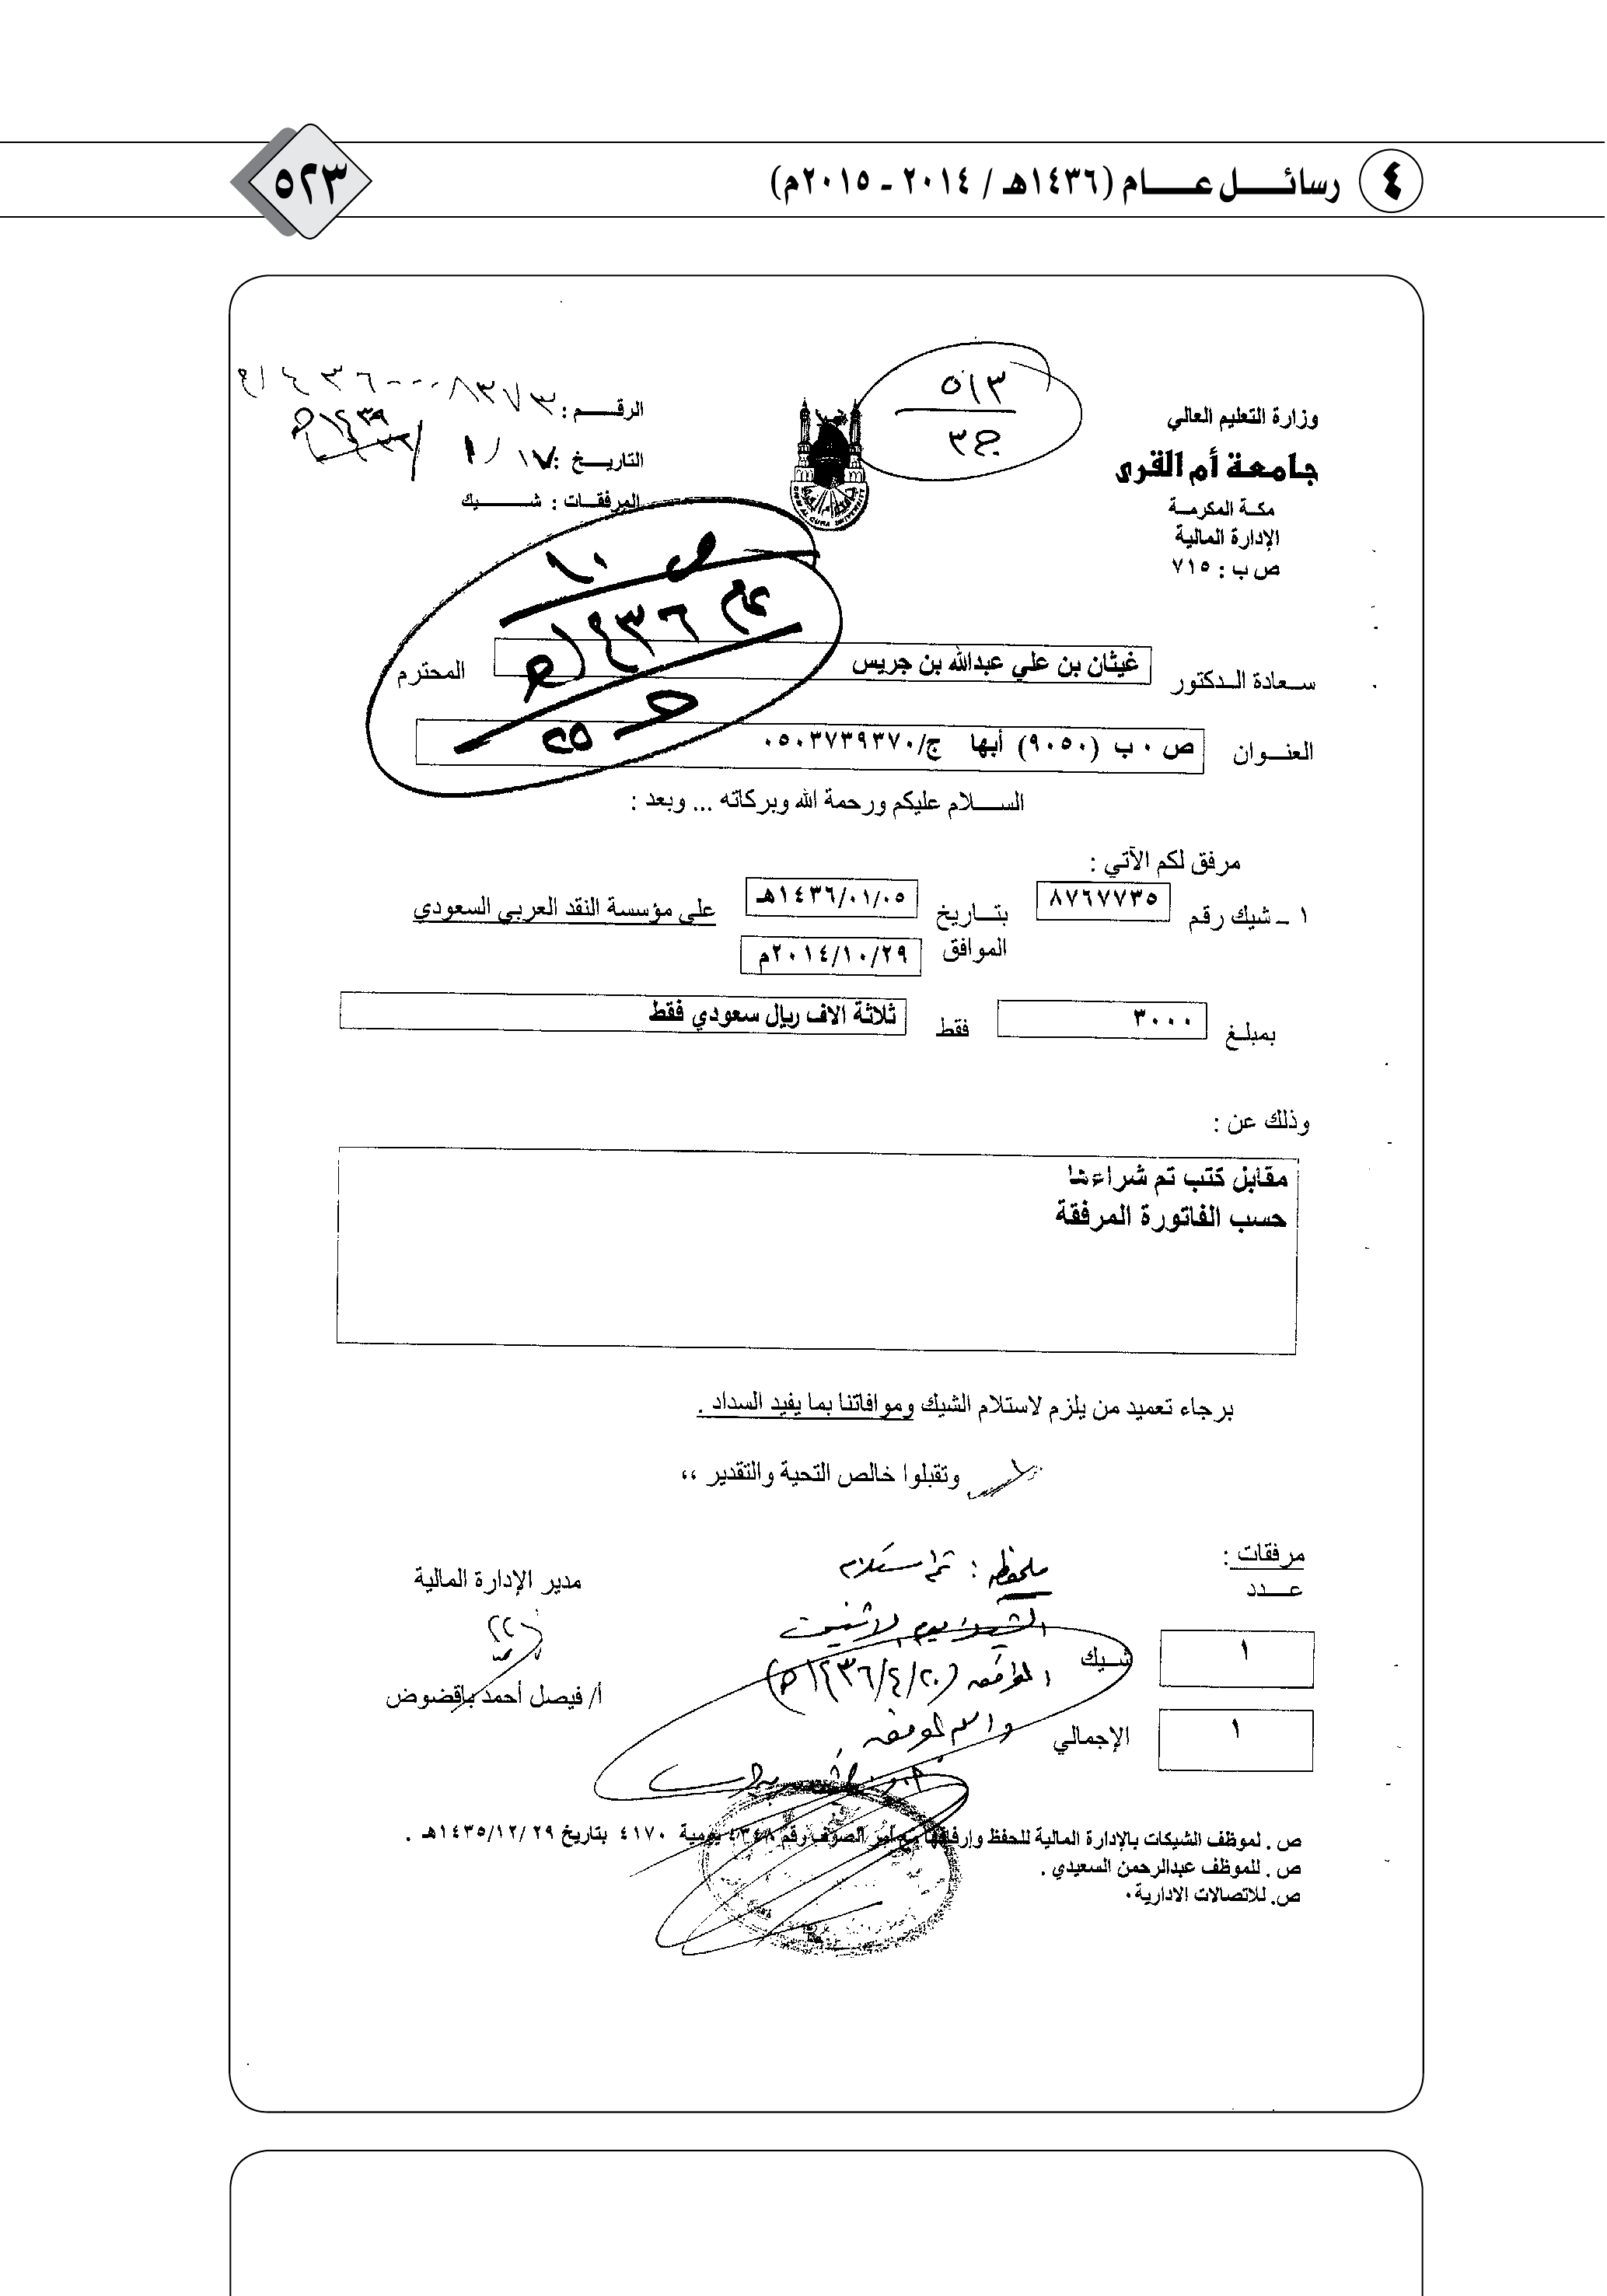 ٤ رسائــــل عــــام (١٤٣٦هـ / ٢٠١٤ - ٢٠١٥م)
٥٢٣
وزارة التعليم العالي
جامعة أم القرى
مكـة المكرمـة
الإدارة المالية
ص ب : ٧١٥
٥١٣
ج٣
الرقـــم :
التاريـــخ : ١٧ / ١ /
المرفقـات : شـــــيك
١٤٣٦هـ
سـعادة الـدكتور غيثان بن علي عبدالله بن جريس المحترم
العنـــوان ص ٠ ب (٩٠٥٠) أبها ج/٠٥٠٣٧٣٩٣٧٠
الســـلام عليكم ورحمة الله وبركاته ... وبعد :
مرفق لكم الآتي :
١ ـ شيك رقم ٨٧٦٧٧٣٥ بتـــاريخ ١٤٣٦/٠١/٠٥هـ على مؤسسة النقد العربي السعودي
الموافق ٢٠١٤/١٠/٢٩م
بمبلـغ ٣٠٠٠ فقط ثلاثة الاف ريال سعودي فقط
وذلك عن :
مقابل كتب تم شراءها
حسب الفاتورة المرفقة
برجاء تعميد من يلزم لاستلام الشيك وموافاتنا بما يفيد السداد .
وتقبلوا خالص التحية والتقدير ،،
مرفقات :
عـــدد
١ شـيك
١ الإجمالي
ملحوظه : تم استلام
الشيك يوم الاثنين
الموافق (١٤٣٦/٤/٢٠هـ)
مدير الإدارة المالية
أ/ فيصل أحمد باقضوض
ص . لموظف الشيكات بالإدارة المالية للحفظ وإرفاقها مع أمر الصرف رقم ٤٣٤٨ يومية ٤١٧٠ بتاريخ ١٤٣٥/١٢/٢٩هـ .
ص . للموظف عبدالرحمن السعيدي .
ص. للاتصالات الادارية٠